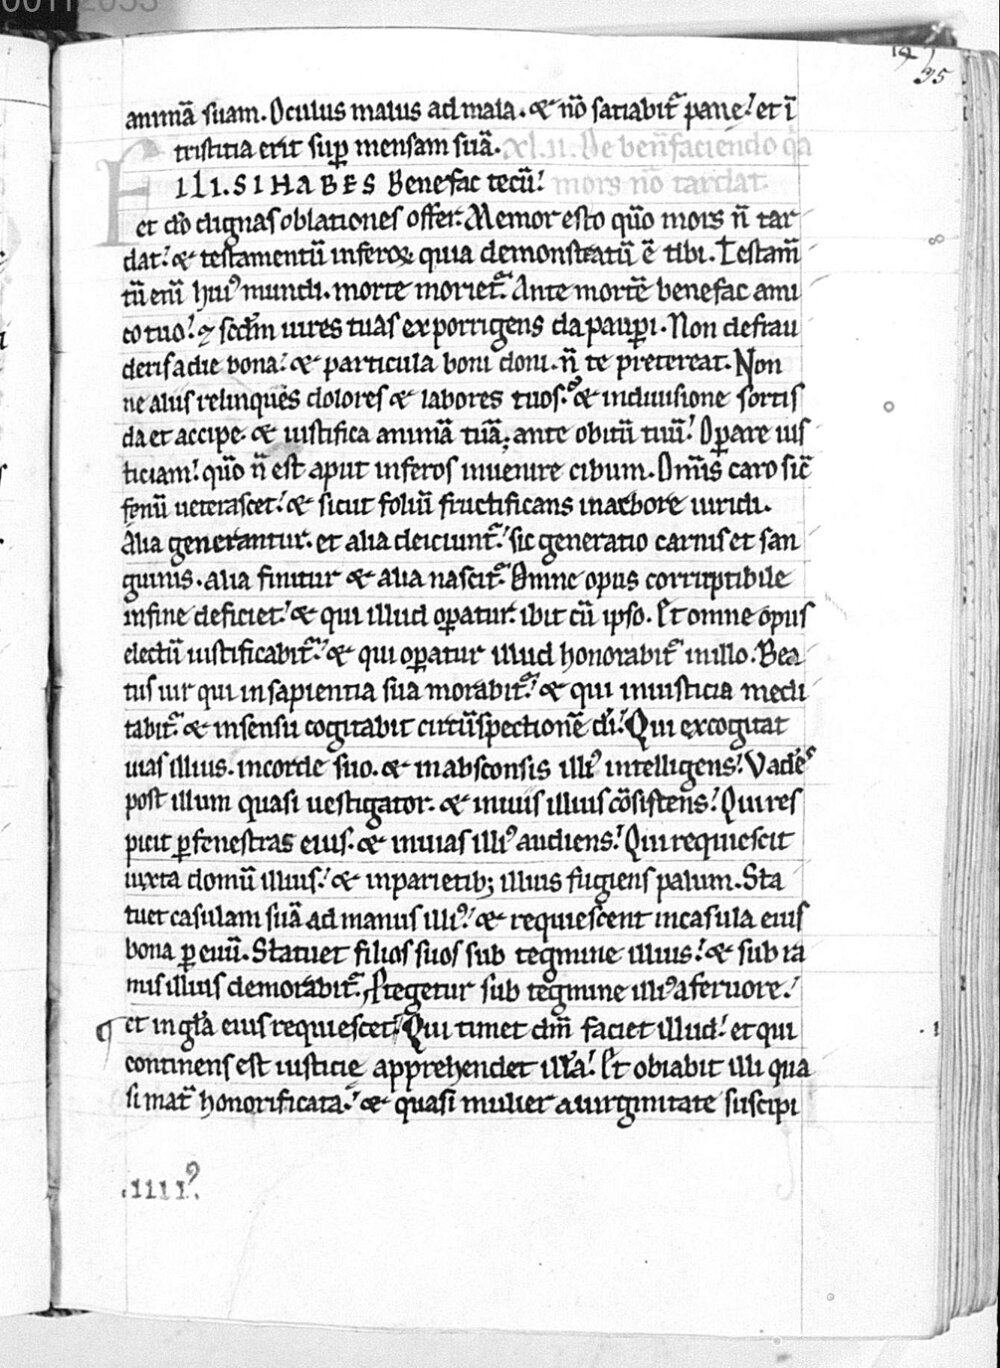 animā suam. Oculus malus ad mala. & nō satiabit᷑ pane. et ī
tristitia erit suꝑ mensam suā. XLII. De beneficiendo q̄a
FILI. SI HABES Benefac tecū. mors nō tardat.
et dō dignas oblationes offer. Memor esto qm̄o mors n̄ tar
dat. & testamentū inferoꝝ quia demonstratū ē tibi. Testam̄
tū eni᷑ huiꝰ mundi. morte moriet᷑. Ante mortē benefac ami
co tuo. ⁊ scd̄m uires tuas exporrigens da pauꝑi. Non defrau
deris a die bona. & particula boni doni. n̄ te pretereat. Non
ne aliis relinques dolores & labores tuos. & in diuisione sortis
da et accipe. & iustifica animā tuā; ante obitū tuū. Oꝑare ius
ticiam. qm̄o n̄ est aput inferos inuenire cibum. Omīs caro sic̄
fenū ueterascet. & sicut foliū fructificans in arbore uiridi.
Alia generantur. et alia deiciunt᷑. sic generatio carnis et san
guinis. alia finitur & alia nascit᷑. Omne opus corruptibile
in fine deficiet. & qui illud oꝑatur. ibit cū ipso. Et omne opus
electū iustificabit᷑. & qui oꝑatur illud honorabit᷑ in illo. Bea
tus uir qui in sapientia sua morabit᷑. & qui in iusticia medi
tabit᷑. & in sensu cogitabit circūspectionē dī. Qui excogitat
uias illius. in corde suo. & in absconsis illiꝰ intelligens. Vadēs
post illum quasi uestigator. & in uiis illius cōsistens. Qui res
picit ꝑ fenestras eius. & in uias illiꝰ audiens. Qui requiescit
iuxta domū illius. & in parietib; illius figiens palum. Sta
tuet casulam suā ad manus illiꝰ. & requiescent in casula eius
bona ꝑ euū. Statuet filios suos sub tegmine illius. & sub ra
mis illius demorabit᷑. Ptegetur sub tegmine illiꝰ a feruore.
et in gl̄a eius requiescet. Qui timet dm̄ faciet illud. et qui
continens est iusticie apprehendet illā. Et obiabit illi qua
si mat᷑ honorificata. & quasi mulier a uirginitate suscipi
.IIIIꝰ.